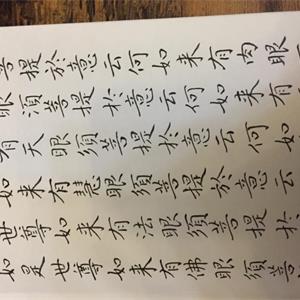 菩提於意云何如来有肉眼
眼須菩提於意云何如来有
有天眼須菩提於意云何如
如来有慧眼須菩提於意云
世尊如来有法眼須菩提於
如是世尊如来有佛眼須菩